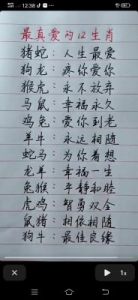 12:38
最真爱的12生肖
猪蛇:人生最爱
狗龙:疼你爱你
猴虎:永不放弃
马鼠:幸福永久
鸡兔:爱你到老
羊牛:永远相随
蛇马:为你着想
龙羊:幸福一生
兔猴:平静和睦
虎鸡:智勇双全
鼠猪:相依相随
狗牛:最佳良缘
1x